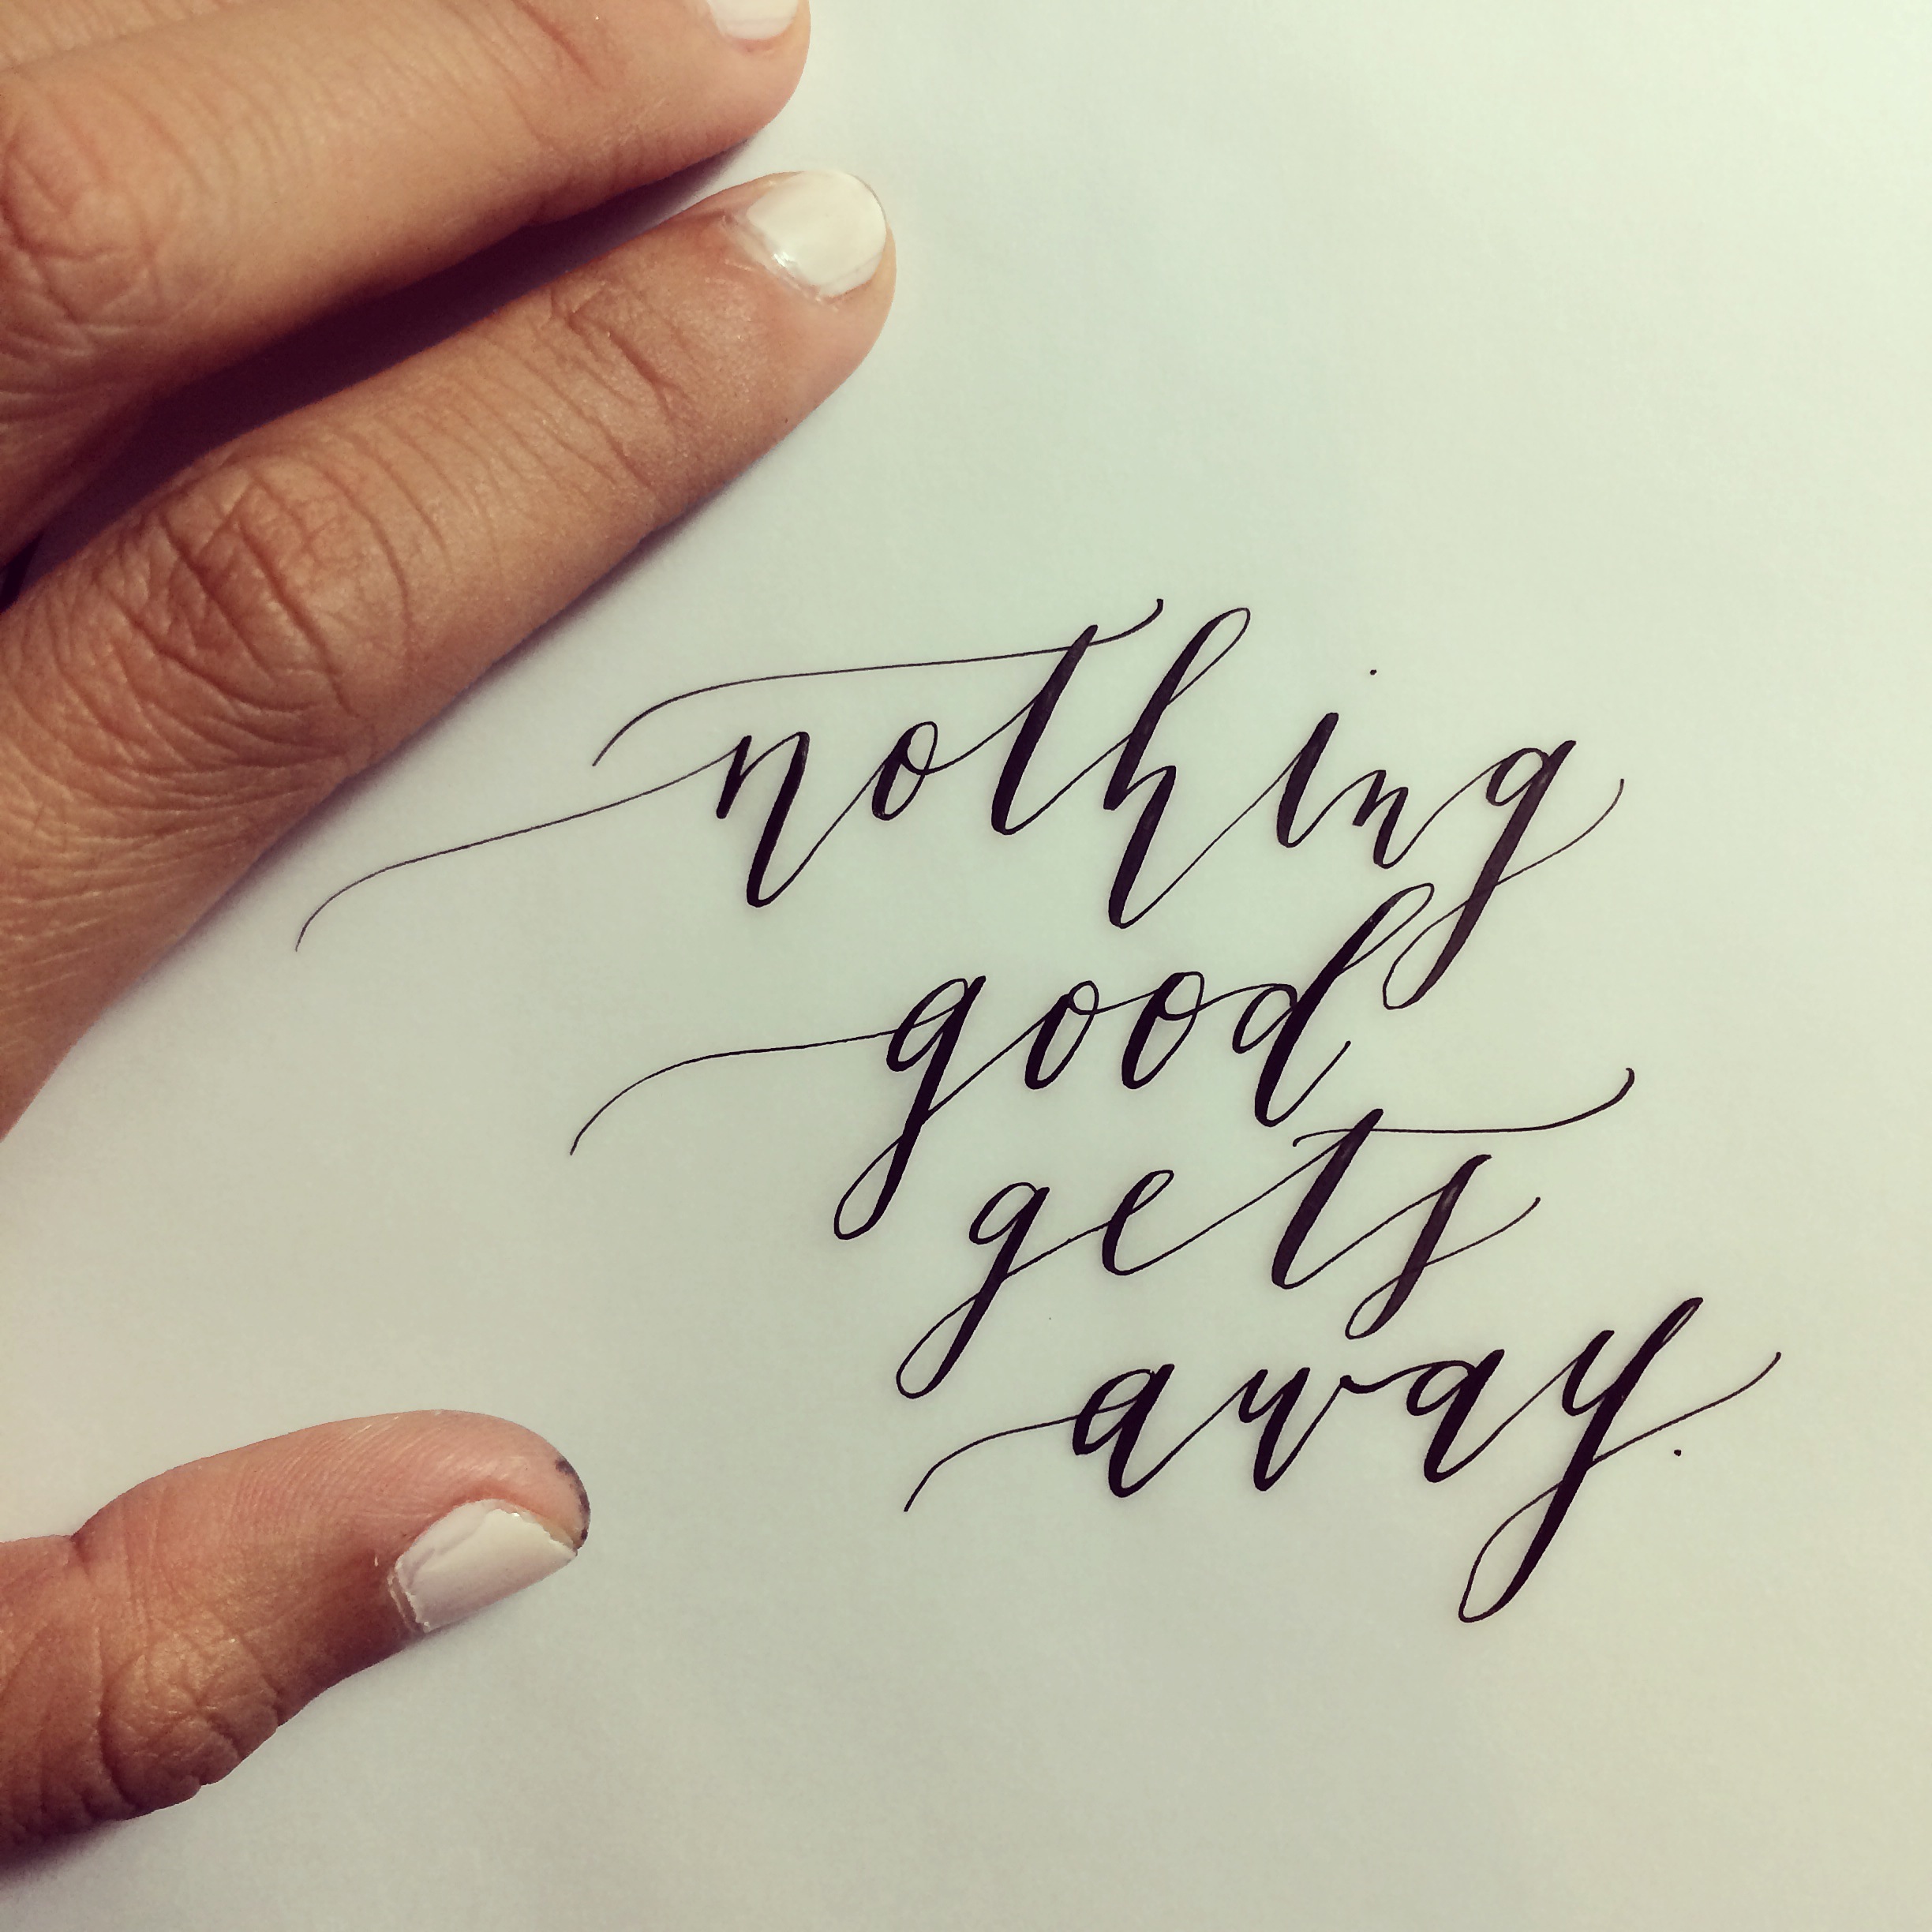 nothing
good
gets
away.